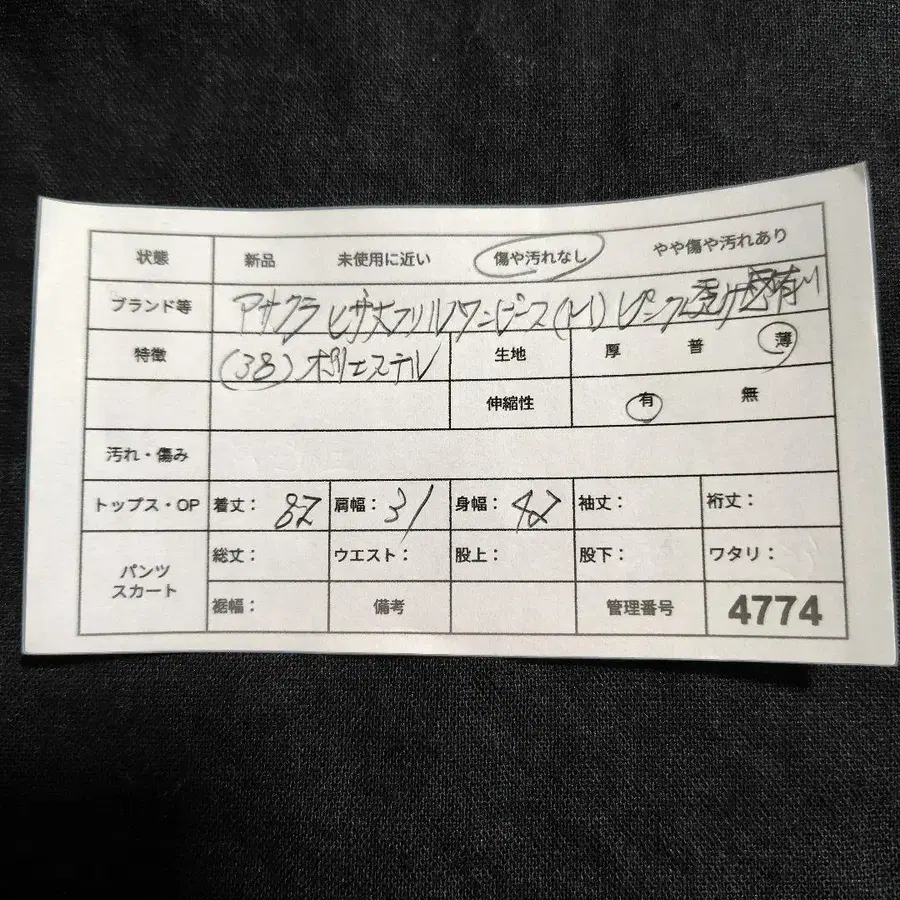 状態 新品 未使用に近い 傷や汚れなし やや傷や汚れあり
ブランド等 アサクラ ヒザ丈フリルワンピース(M) ピンク 透け 有り
特徴 (38)ポリエステル 生地 厚 普 薄
伸縮性 有 無
汚れ・傷み
トップス・OP 着丈: 82 肩幅: 31 身幅: 42 袖丈: 裄丈:
パンツ スカート 総丈: ウエスト: 股上: 股下: ワタリ:
裾幅: 備考 管理番号 4774